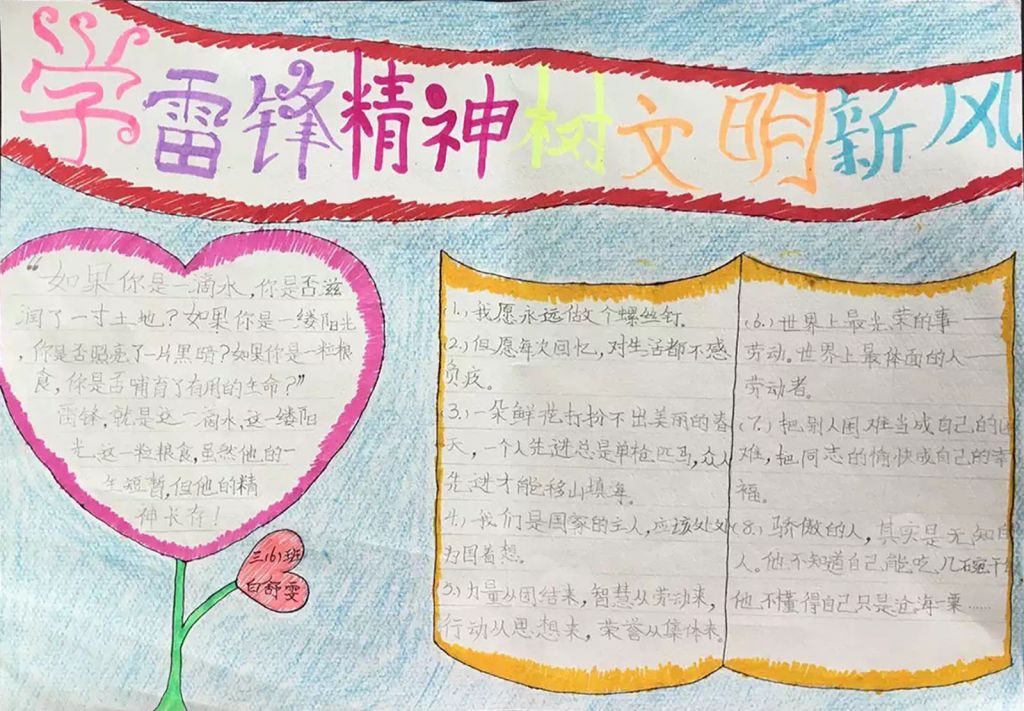 学雷锋精神树文明新风
“如果你是一滴水,你是否滋
润了一寸土地?如果你是一缕阳光
,你是否照亮了一片黑暗?如果你是一粒粮
食,你是否哺育了有用的生命?”
雷锋,就是这一滴水,这一缕阳
光,这一粒粮食,虽然他的一
生短暂,但他的精
神长存!
三(6)班
白舒雯
(1.)我愿永远做个螺丝钉.
(2.)但愿每次回忆,对生活都不感
负疚。
(3.)一朵鲜花打扮不出美丽的春
天,一个人先进总是单枪匹马,众人
先进才能移山填海。
(4.)我们是国家的主人,应该处处
为国着想。
(5.)力量从团结来,智慧从劳动来,
行动从思想来,荣誉从集体来。
(6.)世界上最光荣的事——
劳动。世界上最体面的人——
劳动者。
(7.)把别人困难当成自己的困
难,把同志的愉快成自己的幸
福。
(8.)骄傲的人,其实是无知的
人。他不知道自己能吃几碗干饭
他不懂得自己只是沧海一粟……